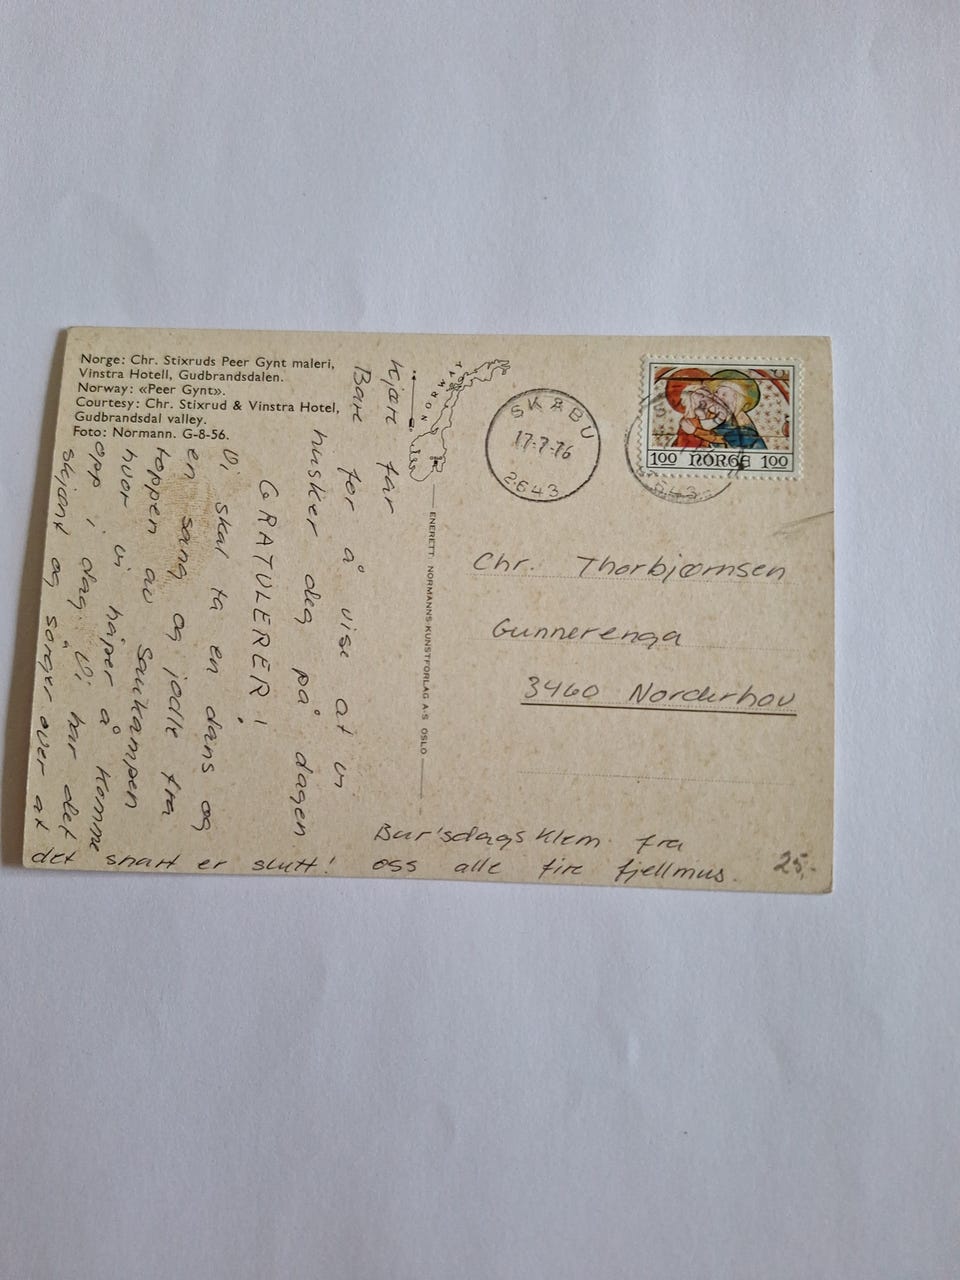 Norge: Chr. Stixruds Peer Gynt maleri,
Vinstra Hotell, Gudbrandsdalen.
Norway: «Peer Gynt».
Courtesy: Chr. Stixrud & Vinstra Hotel,
Gudbrandsdal valley.
Foto: Normann. G-8-56.
Kjære far
Bare for å vise at vi
husker deg på dagen
GRATULERER!
Vi skal ta en dans og
en sang og jodle fra
toppen av Saukampen
hvor vi håper å komme
opp i dag. Vi har det
skjønt og sørger over at
det snart er slutt!
Bur'sdagsklem fra
oss alle fire fjellmus.
NORWAY
ENERETT: NORMANNS KUNSTFORLAG A-S OSLO
SKÅBU
17-7-76
2643
1.00 NORGE 1.00
2643
Chr. Thorbjørnsen
Gunnerenga
3460 Norderhov
25,-